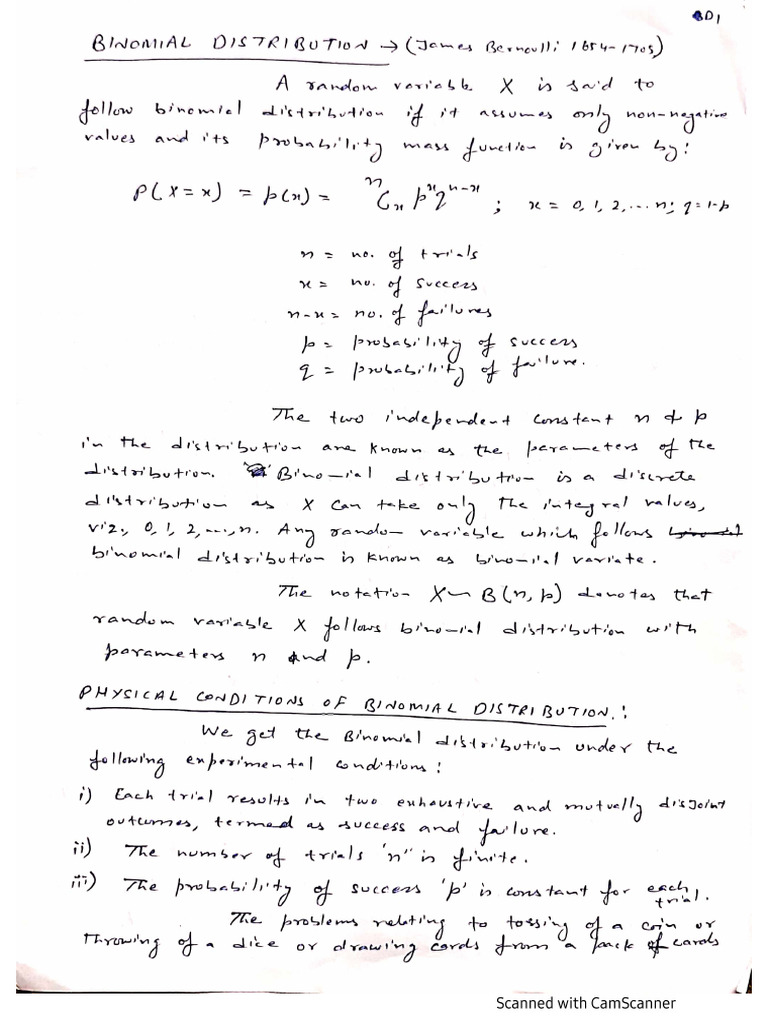 BD1
BINOMIAL DISTRIBUTION → (James Bernoulli 1654-1705)
A random variable X is said to
follow binomial distribution if it assumes only non-negative
values and its probability mass function is given by:
P(X=x) = p(x) = ⁿCₓ pˣ qⁿ⁻ˣ ; x = 0, 1, 2, ... n; q=1-p
n = no. of trials
x = no. of success
n-x = no. of failures
p = probability of success
q = probability of failure.
The two independent constant n & p
in the distribution are known as the parameters of the
distribution. Binomial distribution is a discrete
distribution as X can take only the integral values,
viz., 0, 1, 2, ..., n. Any random variable which follows
binomial distribution is known as binomial variate.
The notation X~B(n, p) denotes that
random variable X follows binomial distribution with
parameters n and p.
PHYSICAL CONDITIONS OF BINOMIAL DISTRIBUTION.:
We get the Binomial distribution under the
following experimental conditions:
i) Each trial results in two exhaustive and mutually disjoint
outcomes, termed as success and failure.
ii) The number of trials 'n' is finite.
iii) The probability of success 'p' is constant for each
trial.
The problems relating to tossing of a coin or
throwing of a dice or drawing cards from a pack of cards
Scanned with CamScanner